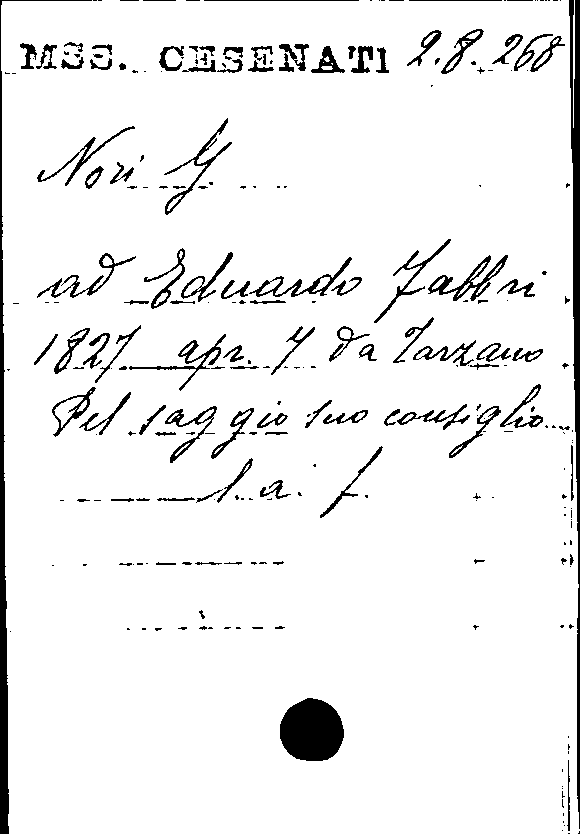 MSS. CESENATI 2.8.268
Nori G
ad Eduardo Fabbri
1827 apr. 7 da Tarzano
Pel saggio suo consiglio
l. a. f.